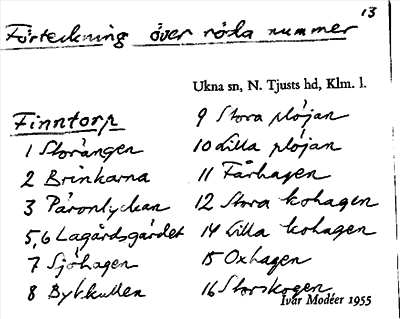 13
Förteckning över röda nummer
Ukna sn, N. Tjusts hd, Klm. l.
Finntorp
1 Storängen
2 Brinkarna
3 Päronlyckan
5,6 Lagårdsgärdet
7 Sjöhagen
8 Bykullen
9 Stora plöjan
10 Lilla plöjan
11 Fårhagen
12 Stora kohagen
14 Lilla kohagen
15 Oxhagen
16 Storskogen
Ivar Modéer 1955